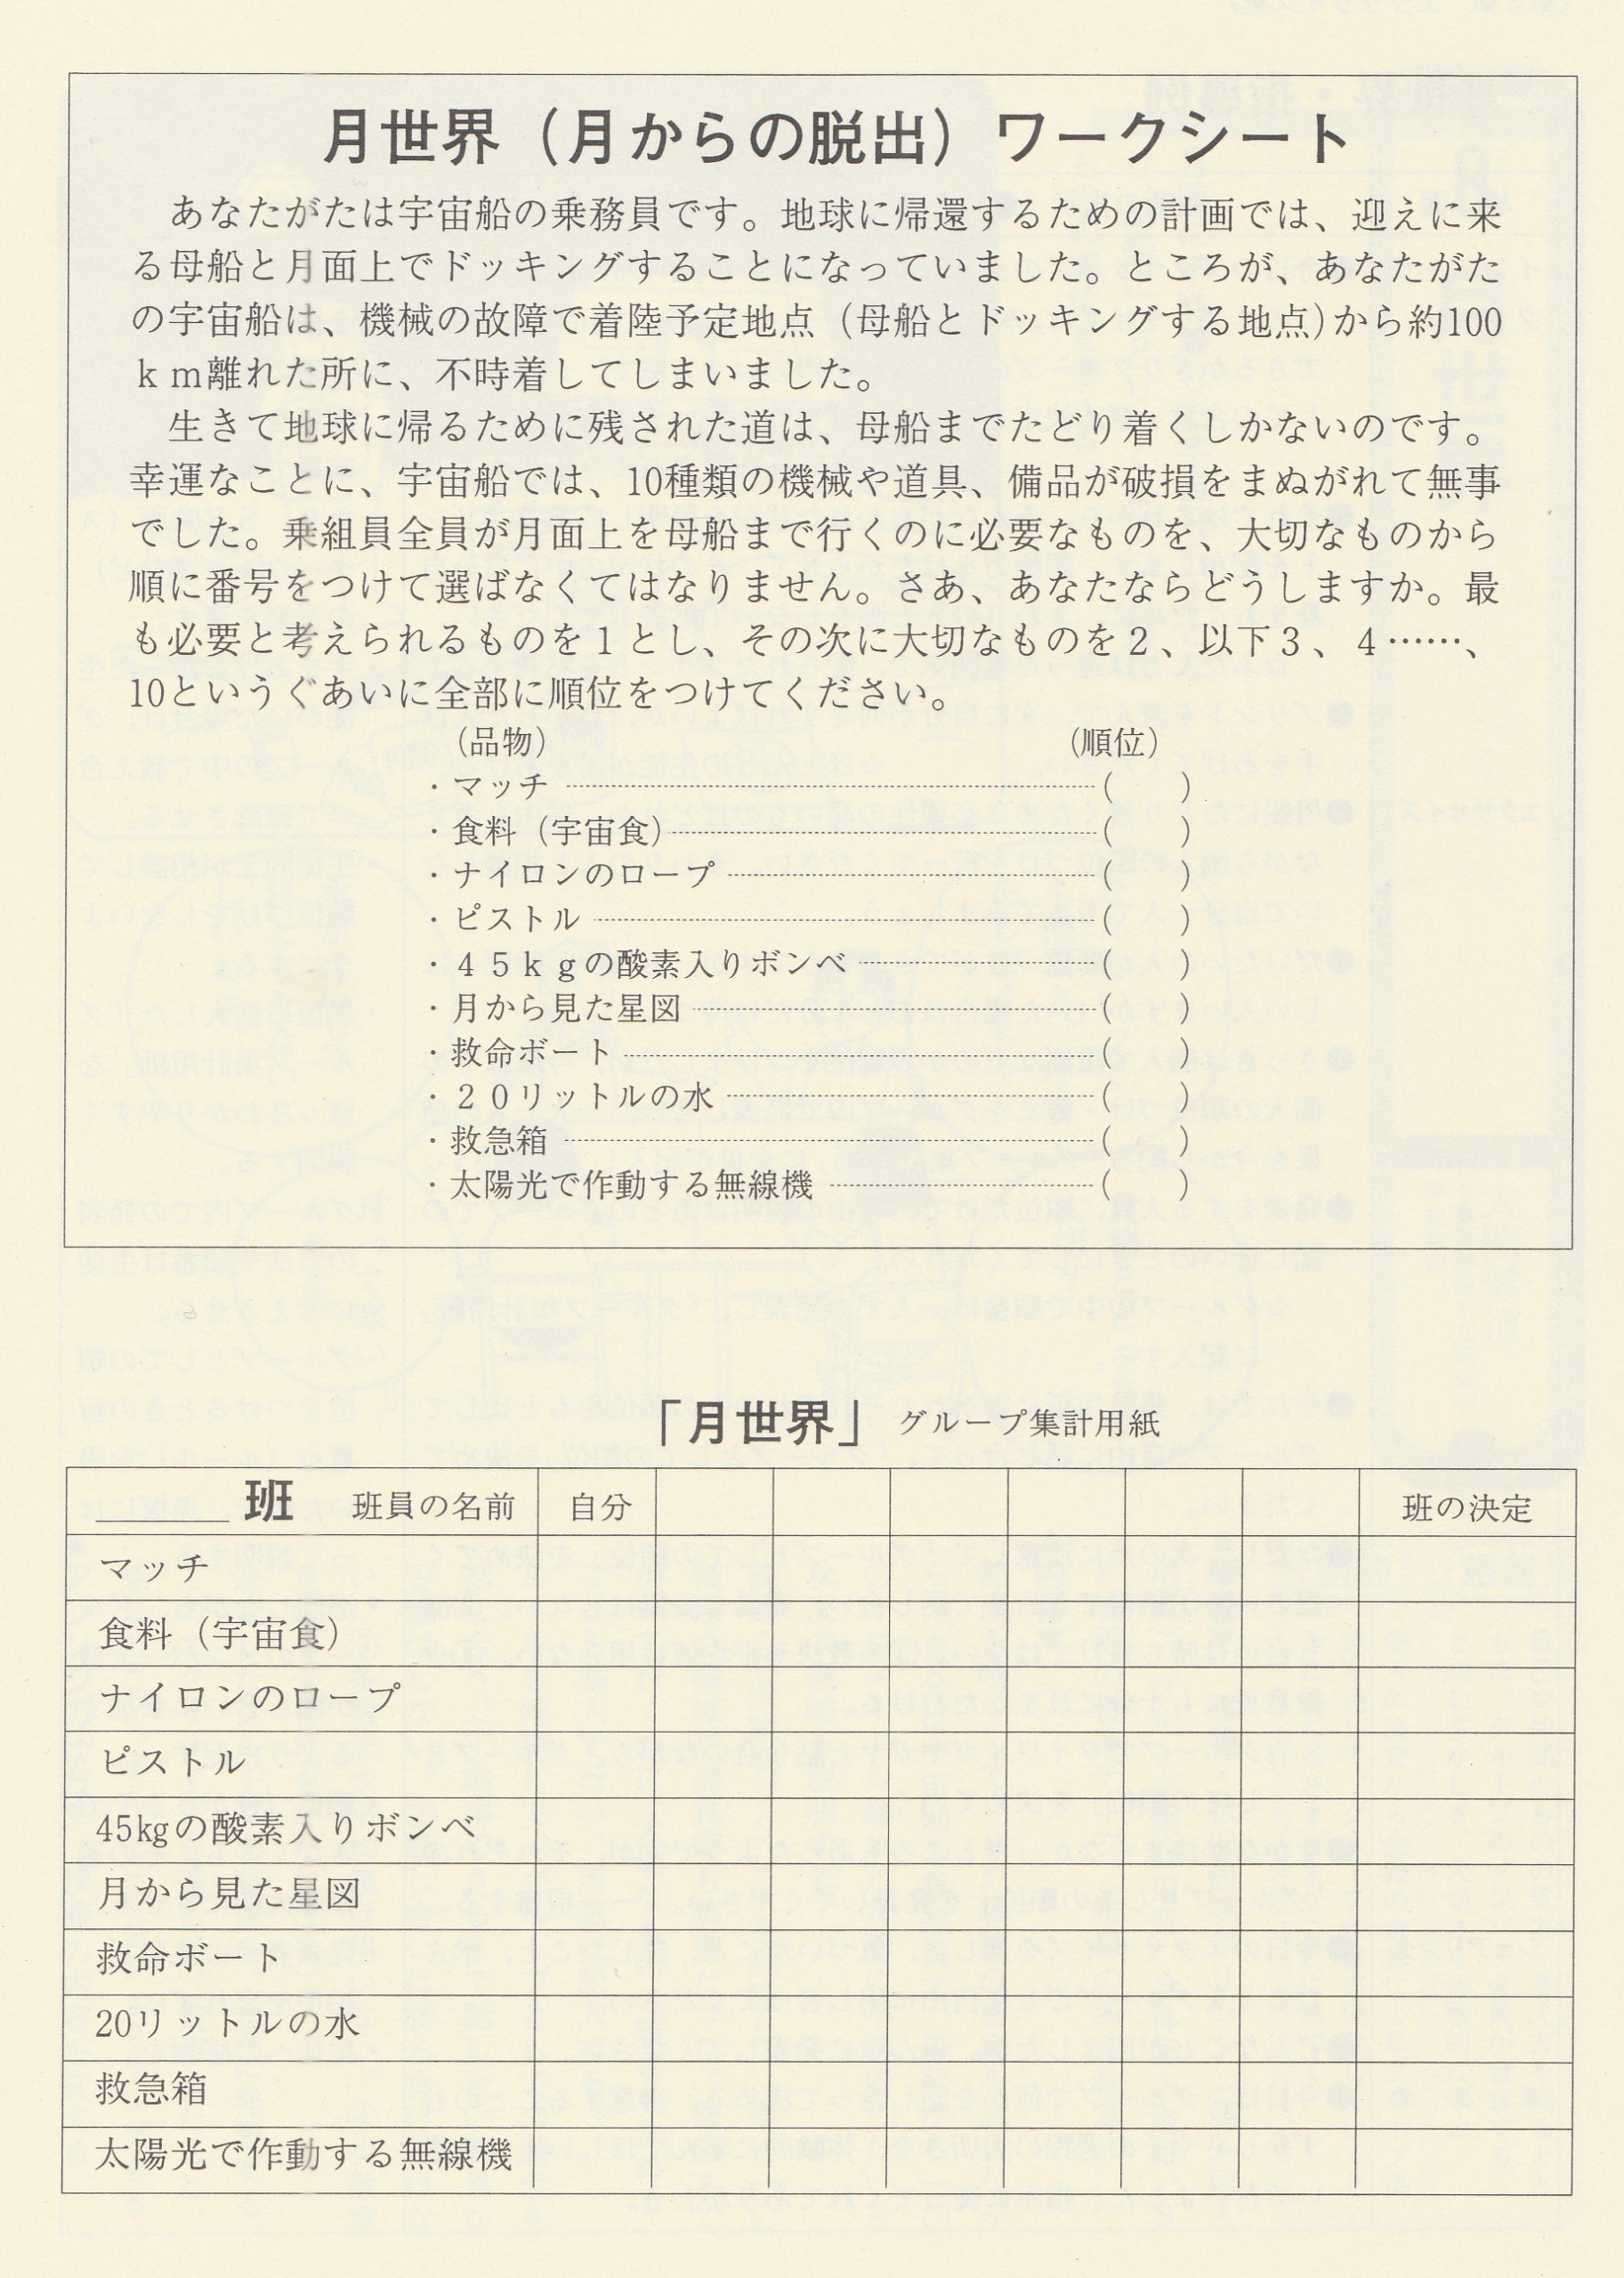 月世界（月からの脱出）ワークシート
あなたがたは宇宙船の乗務員です。地球に帰還するための計画では、迎えに来
る母船と月面上でドッキングすることになっていました。ところが、あなたがた
の宇宙船は、機械の故障で着陸予定地点（母船とドッキングする地点）から約100
ｋｍ離れた所に、不時着してしまいました。
生きて地球に帰るために残された道は、母船までたどり着くしかないのです。
幸運なことに、宇宙船では、10種類の機械や道具、備品が破損をまぬがれて無事
でした。乗組員全員が月面上を母船まで行くのに必要なものを、大切なものから
順に番号をつけて選ばなくてはなりません。さあ、あなたならどうしますか。最
も必要と考えられるものを１とし、その次に大切なものを２、以下３、４……、
10というぐあいに全部に順位をつけてください。
（品物）　（順位）
・マッチ ……（　　）
・食料（宇宙食）……（　　）
・ナイロンのロープ ……（　　）
・ピストル ……（　　）
・４５ｋｇの酸素入りボンベ ……（　　）
・月から見た星図 ……（　　）
・救命ボート ……（　　）
・２０リットルの水 ……（　　）
・救急箱 ……（　　）
・太陽光で作動する無線機 ……（　　）
「月世界」 グループ集計用紙
＿＿＿班　班員の名前　自分　班の決定
マッチ
食料（宇宙食）
ナイロンのロープ
ピストル
45kgの酸素入りボンベ
月から見た星図
救命ボート
20リットルの水
救急箱
太陽光で作動する無線機